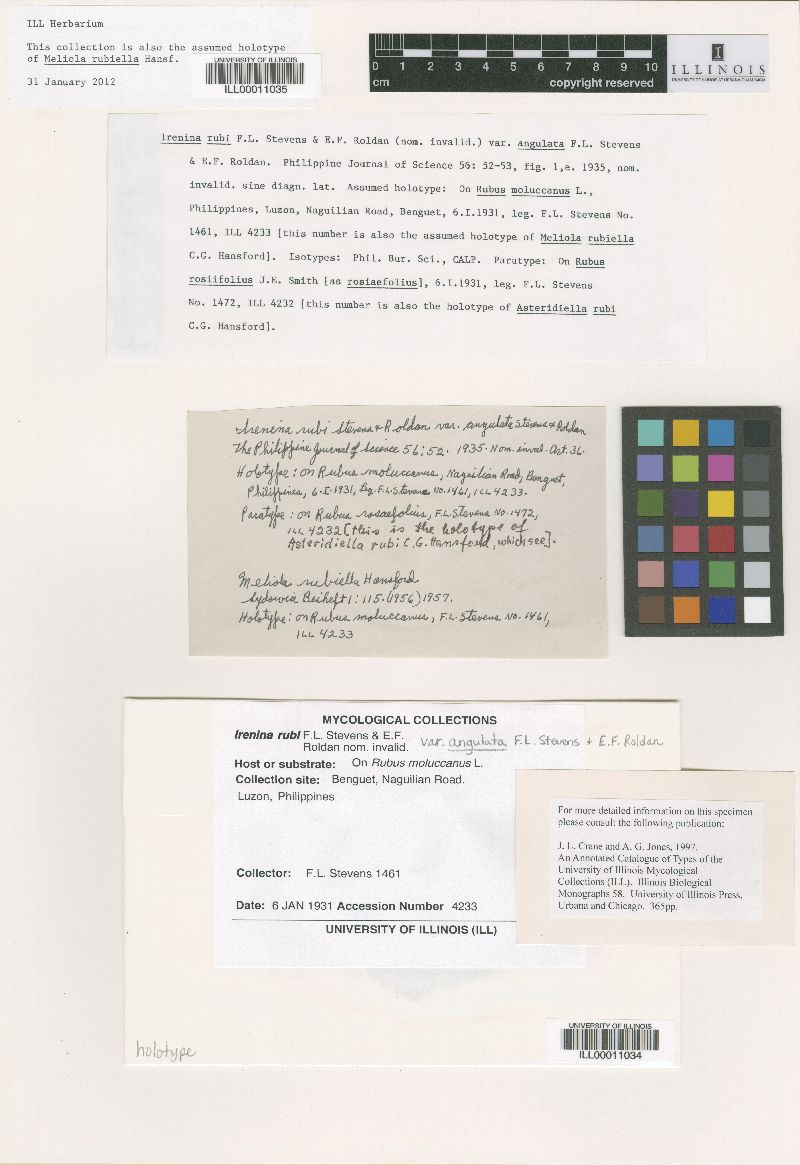 ILL Herbarium
This collection is also the assumed holotype
of Meliola rubiella Hansf.
31 January 2012
UNIVERSITY OF ILLINOIS
ILL00011035
0 1 2 3 4 5 6 7 8 9 10
cm copyright reserved
I
ILLINOIS
UNIVERSITY OF ILLINOIS AT URBANA-CHAMPAIGN
Irenina rubi F.L. Stevens & E.F. Roldan (nom. invalid.) var. angulata F.L. Stevens
& E.F. Roldan. Philippine Journal of Science 56: 52-53, fig. 1,e. 1935, nom.
invalid. sine diagn. lat. Assumed holotype: On Rubus moluccanus L.,
Philippines, Luzon, Naguilian Road, Benguet, 6.I.1931, leg. F.L. Stevens No.
1461, ILL 4233 [this number is also the assumed holotype of Meliola rubiella
C.G. Hansford]. Isotypes: Phil. Bur. Sci., CALP. Paratype: On Rubus
rosiifolius J.E. Smith [as rosiaefolius], 6.I.1931, leg. F.L. Stevens
No. 1472, ILL 4232 [this number is also the holotype of Asteridiella rubi
C.G. Hansford].
Irenina rubi Stevens & Roldan var. angulata Stevens & Roldan
The Philippine Journal of Science 56:52. 1935. Nom. inval. Art. 36.
Holotype: on Rubus moluccanus, Naguilian Road, Benguet,
Philippines, 6-I-1931, Leg. F.L. Stevens No. 1461, ILL 4233.
Paratype: on Rubus rosaefolius, F.L. Stevens No. 1472,
ILL 4232 [this is the holotype of
Asteridiella rubi C.G. Hansford, which see].
Meliola rubiella Hansford
Sydowia Beiheft 1: 115. (1956) 1957.
Holotype: on Rubus moluccanus, F.L. Stevens No. 1461,
ILL 4233
MYCOLOGICAL COLLECTIONS
Irenina rubi F.L. Stevens & E.F.
Roldan nom. invalid. var. angulata F.L. Stevens + E.F. Roldan
Host or substrate: On Rubus moluccanus L.
Collection site: Benguet, Naguilian Road.
Luzon, Philippines
Collector: F.L. Stevens 1461
Date: 6 JAN 1931 Accession Number 4233
UNIVERSITY OF ILLINOIS (ILL)
For more detailed information on this specimen
please consult the following publication:
J. L. Crane and A. G. Jones, 1997.
An Annotated Catalogue of Types of the
University of Illinois Mycological
Collections (ILL). Illinois Biological
Monographs 58. University of Illinois Press,
Urbana and Chicago. 365pp.
UNIVERSITY OF ILLINOIS
ILL00011034
holotype